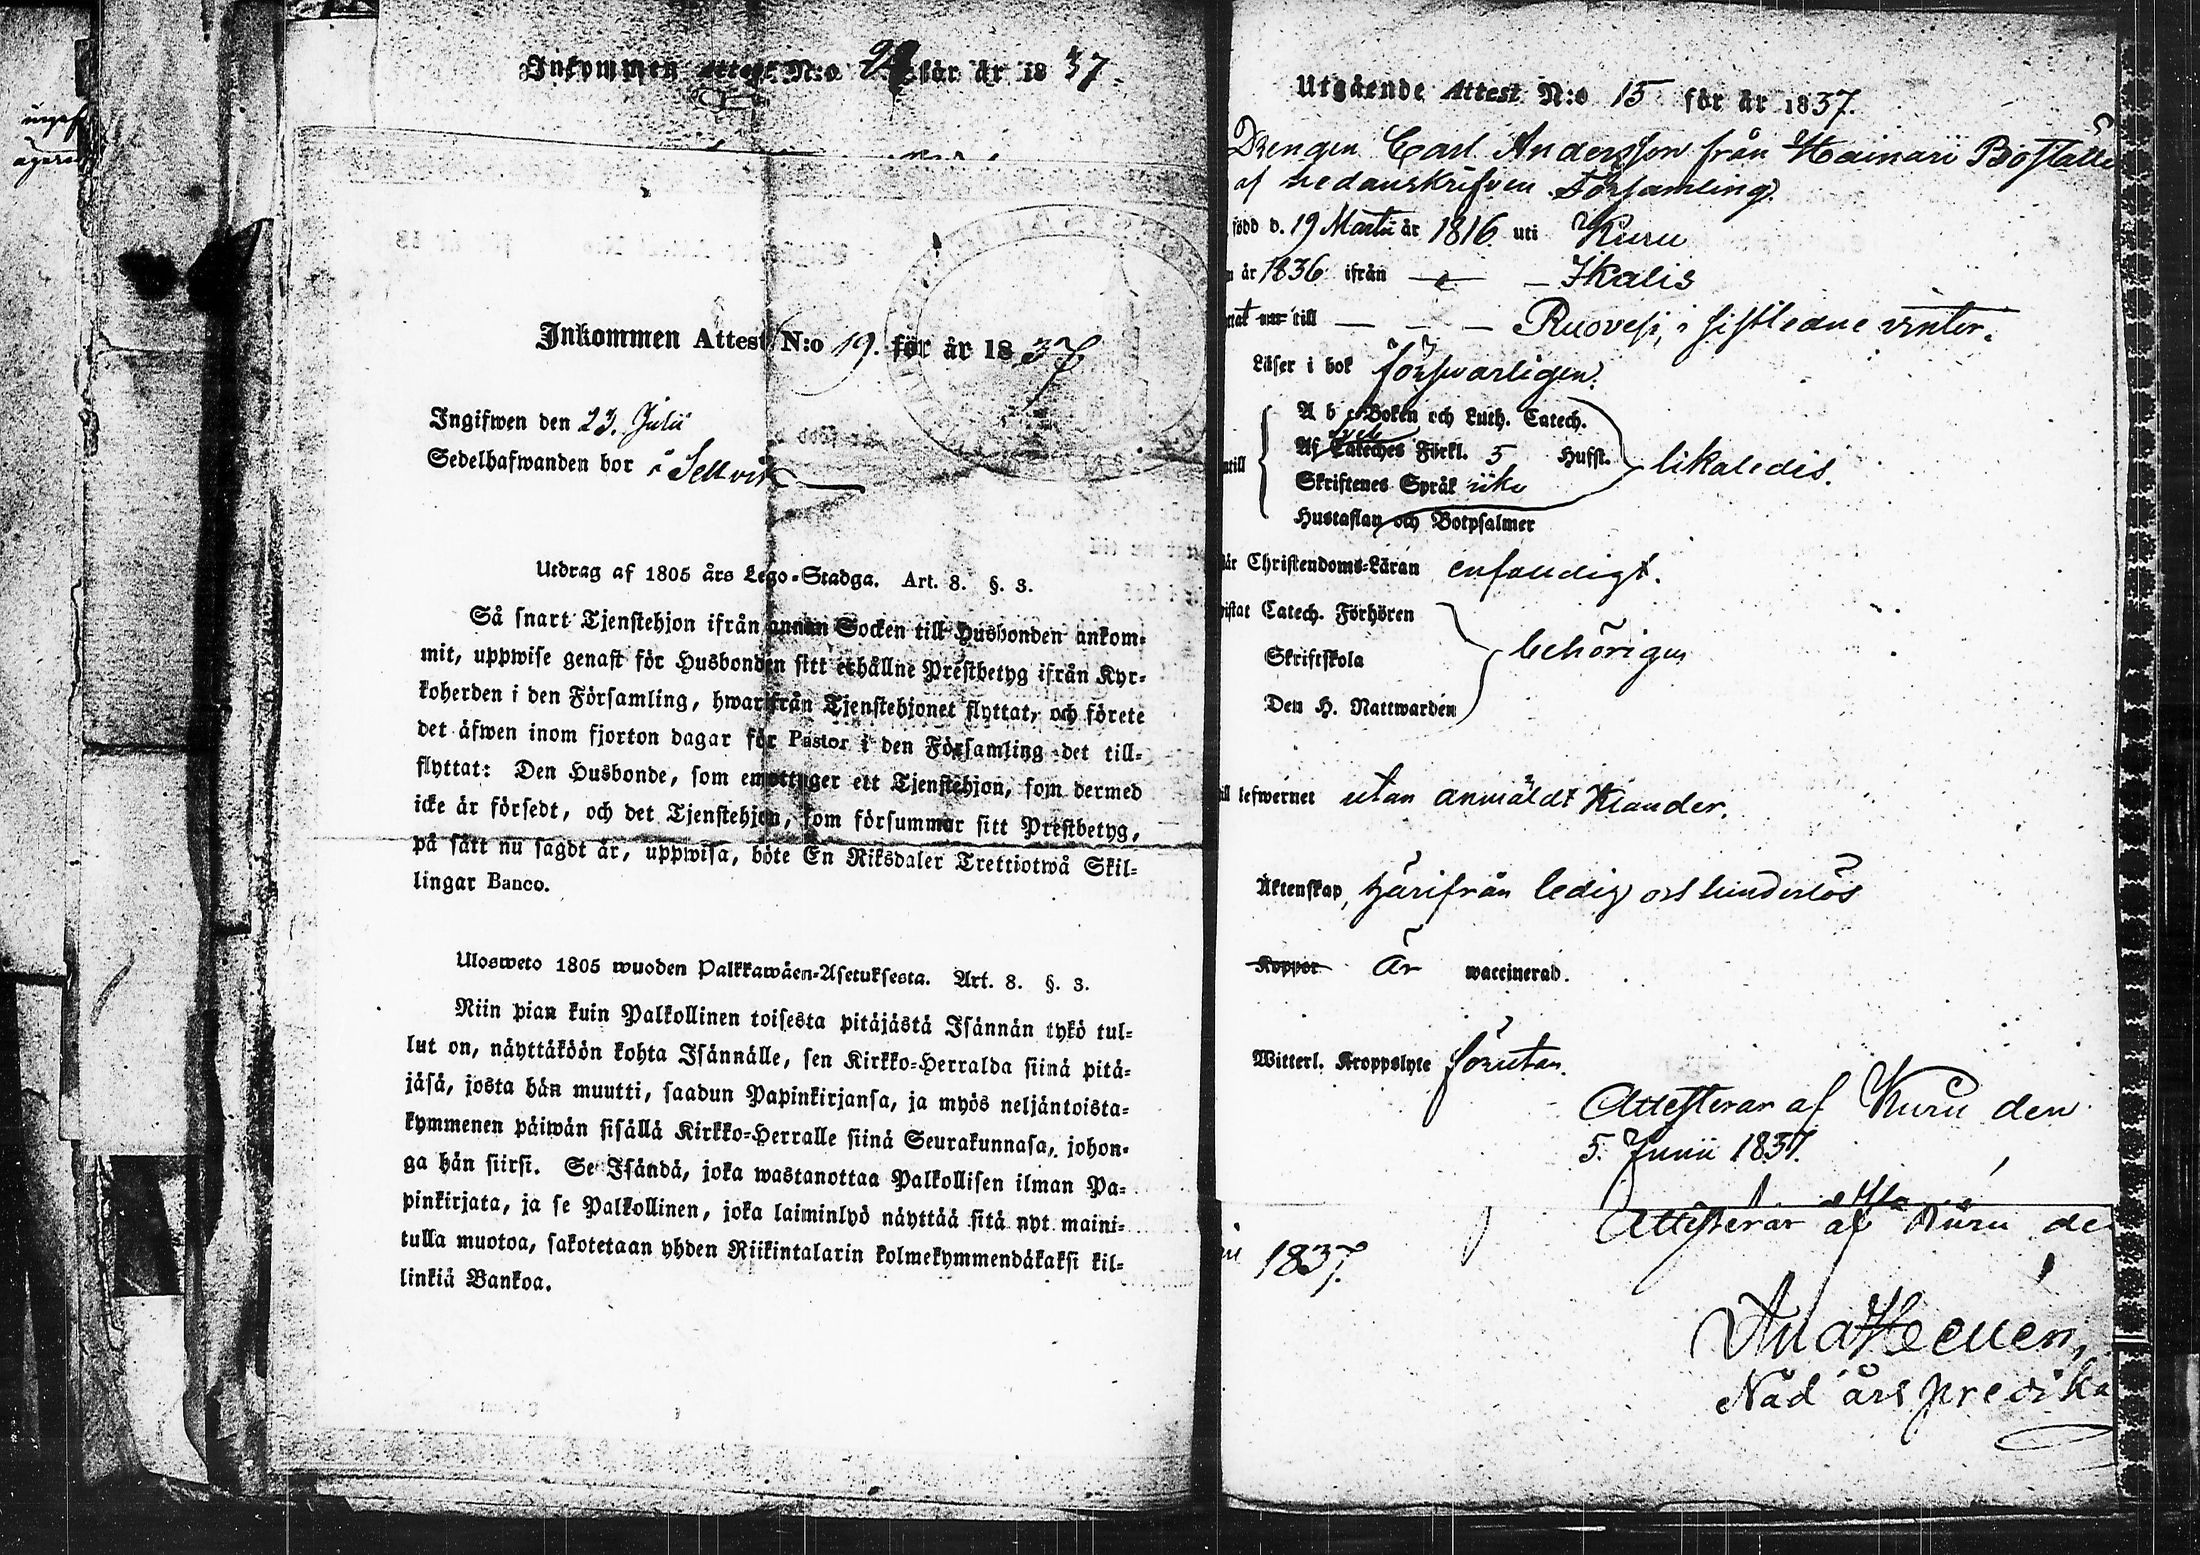 Inkommen Attest N:o för år 1837.
Inkommen Attest N:o 19. för år 1837
Ingifwen den 23. Julii
Sedelhafwanden bor i
Utdrag af 1805 års Lego-Stadga. Art. 8. §. 3.
Så snart Tjenstehjon ifrån annan Socken till Husbonden ankom-
mit, uppwise genast för Husbonden sitt erhållne Prestbetyg ifrån Kyr-
koherden i den Församling, hwarifrån Tjenstehjonet flyttat, och förete
det äfwen inom fjorton dagar för Pastor i den Församling det till-
flyttat: Den Husbonde, som emottager ett Tjenstehjon, som dermed
icke är försedt, och det Tjenstehjon, som försummar sitt Prestbetyg,
på sätt nu sagdt är, uppwisa, böte En Riksdaler Trettiotwå Skil-
lingar Banco.
Ulosweto 1805 wuoden Palkkawäen-Asetuksesta. Art. 8. §. 3.
Niin pian kuin Palkollinen toisesta pitäjästä Isännän tykö tul-
lut on, näyttäköön kohta Isännälle, sen Kirkko-Herralda siinä pitä-
jäsä, josta hän muutti, saadun Papinkirjansa, ja myös neljäntoista-
kymmenen päiwän sisällä Kirkko-Herralle siinä Seurakunnasa, johon-
ga hän siirsi. Se Isändä, joka wastanottaa Palkollisen ilman Pa-
pinkirjata, ja se Palkollinen, joka laiminlyö näyttää sitä nyt maini-
tulla muotoa, sakotetaan yhden Riikintalarin kolmekymmendäkaksi kil-
linkiä Bankoa.
Utgående Attest N:o 15 för år 1837.
Drengen Carl Andersson från Hainari Boställe
af nedanskrifven Församling.
född d. 19 Martii år 1816 uti Kuru
år 1836 ifrån Ikalis
till Ruovesi, i sistledne vinter.
Läser i bok försvarligen.
A b c-Boken och Luth. Catech.
Af Cateches Förkl. 5 Husst.
Skriftenes Språk icke
likaledes.
Hustaflan och Botpsalmer
Christendoms-Läran enfaldigt.
Catech. Förhören
Skriftskola
behörigen
Den H. Nattwarden
lefwernet utan anmäldt klander.
Äktenskap, härifrån ledig och hinderlös
Koppor Är waccinerad.
Witterl. Kroppslyte förutan.
Attesterar af Kuru den
5. Junii 1837.
Attesterar af Kuru de
1837.
Nåd års predika